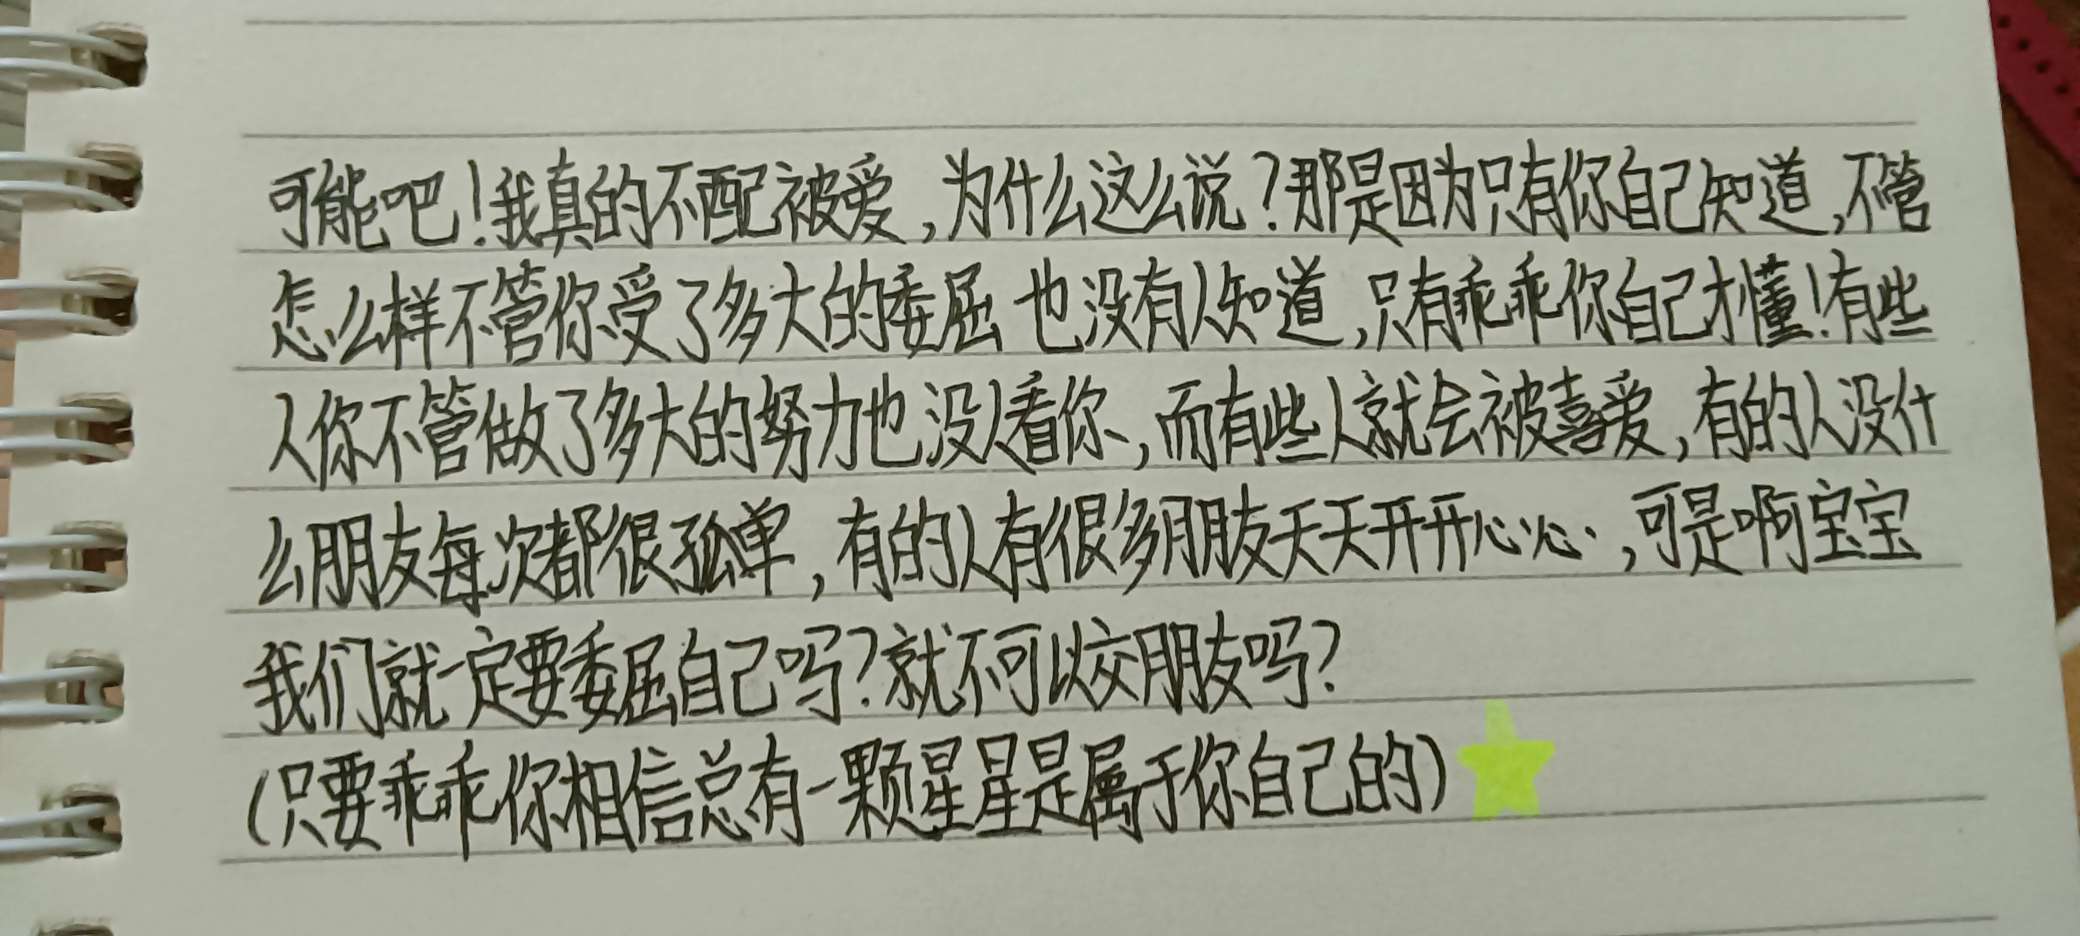 可能吧！我真的不配被爱，为什么这么说？那是因为只有你自己知道，不管
怎么样不管你受了多大的委屈 也没有人知道，只有乖乖你自己才懂！有些
人你不管做了多大的努力也没人看你、，而有些人就会被喜爱，有的人没什
么朋友每次都很孤单，有的人有很多朋友天天开开心心·，可是啊宝宝
我们就一定要委屈自己吗？就不可以交朋友吗？
（只要乖乖你相信总有一颗星星是属于你自己的）